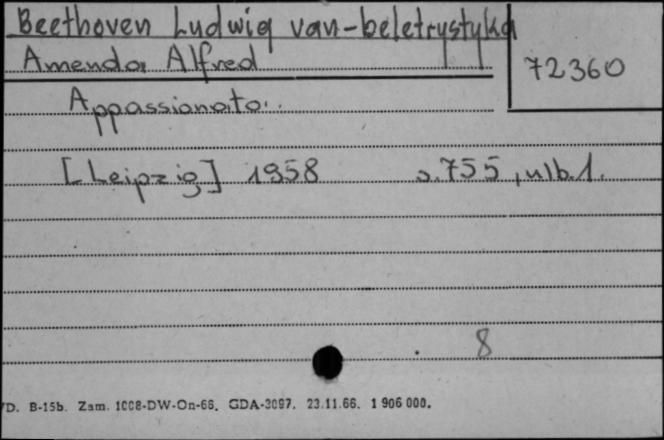 Beethoven Ludwig van-beletrystyka
Amenda Alfred
72360
Appassionata.
[Leipzig] 1958 s.755, nlb.1.
8
D. B-15b. Zam. 1008-DW-On-66. GDA-3097. 23.11.66. 1 906 000.